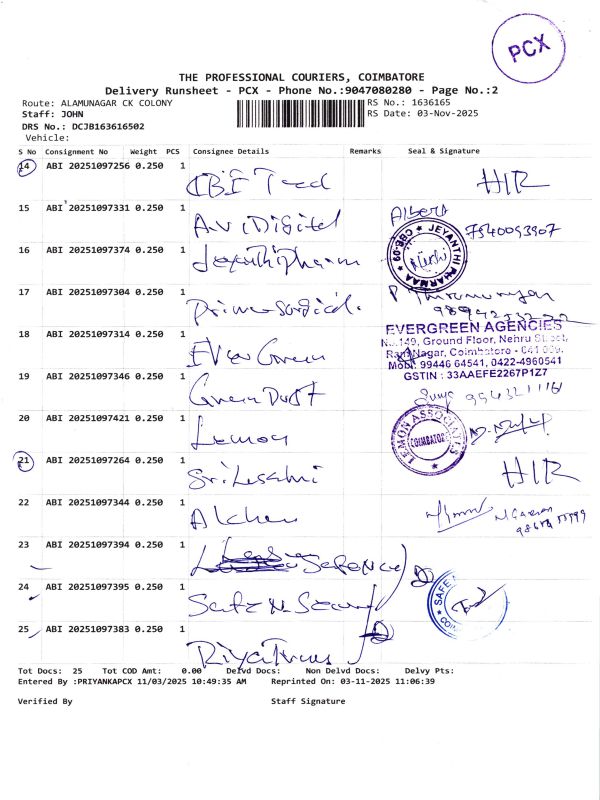 PCX
THE PROFESSIONAL COURIERS, COIMBATORE
Delivery Runsheet - PCX - Phone No.:9047080280 - Page No.:2
Route: ALAMUNAGAR CK COLONY RS No.: 1636165
Staff: JOHN RS Date: 03-Nov-2025
DRS No.: DCJB163616502
Vehicle:
S No Consignment No Weight PCS Consignee Details Remarks Seal & Signature
14 ABI 20251097256 0.250 1 H/R
15 ABI 20251097331 0.250 1 Avi Digital Albert 7540093907
16 ABI 20251097374 0.250 1 Jeyanthi pharm JEYANTHI PHARMAA ★ CBE-09 ★
17 ABI 20251097304 0.250 1 Prime Surgical.
18 ABI 20251097314 0.250 1 Ever Green EVERGREEN AGENCIES
No.149, Ground Floor, Nehru Street,
Ram Nagar, Coimbatore - 641 009.
Mobl: 99446 64541, 0422-4960541
GSTIN : 33AAEFE2267P1Z7
19 ABI 20251097346 0.250 1 Green Dust
20 ABI 20251097421 0.250 1 Lemon LEMON ASSOCIATES COIMBATORE ★
21 ABI 20251097264 0.250 1 H/R
22 ABI 20251097344 0.250 1
23 ABI 20251097394 0.250 1
24 ABI 20251097395 0.250 1 ★ SAFE
25 ABI 20251097383 0.250 1
Tot Docs: 25 Tot COD Amt: 0.00 Delvd Docs: Non Delvd Docs: Delvy Pts:
Entered By :PRIYANKAPCX 11/03/2025 10:49:35 AM Reprinted On: 03-11-2025 11:06:39
Verified By Staff Signature